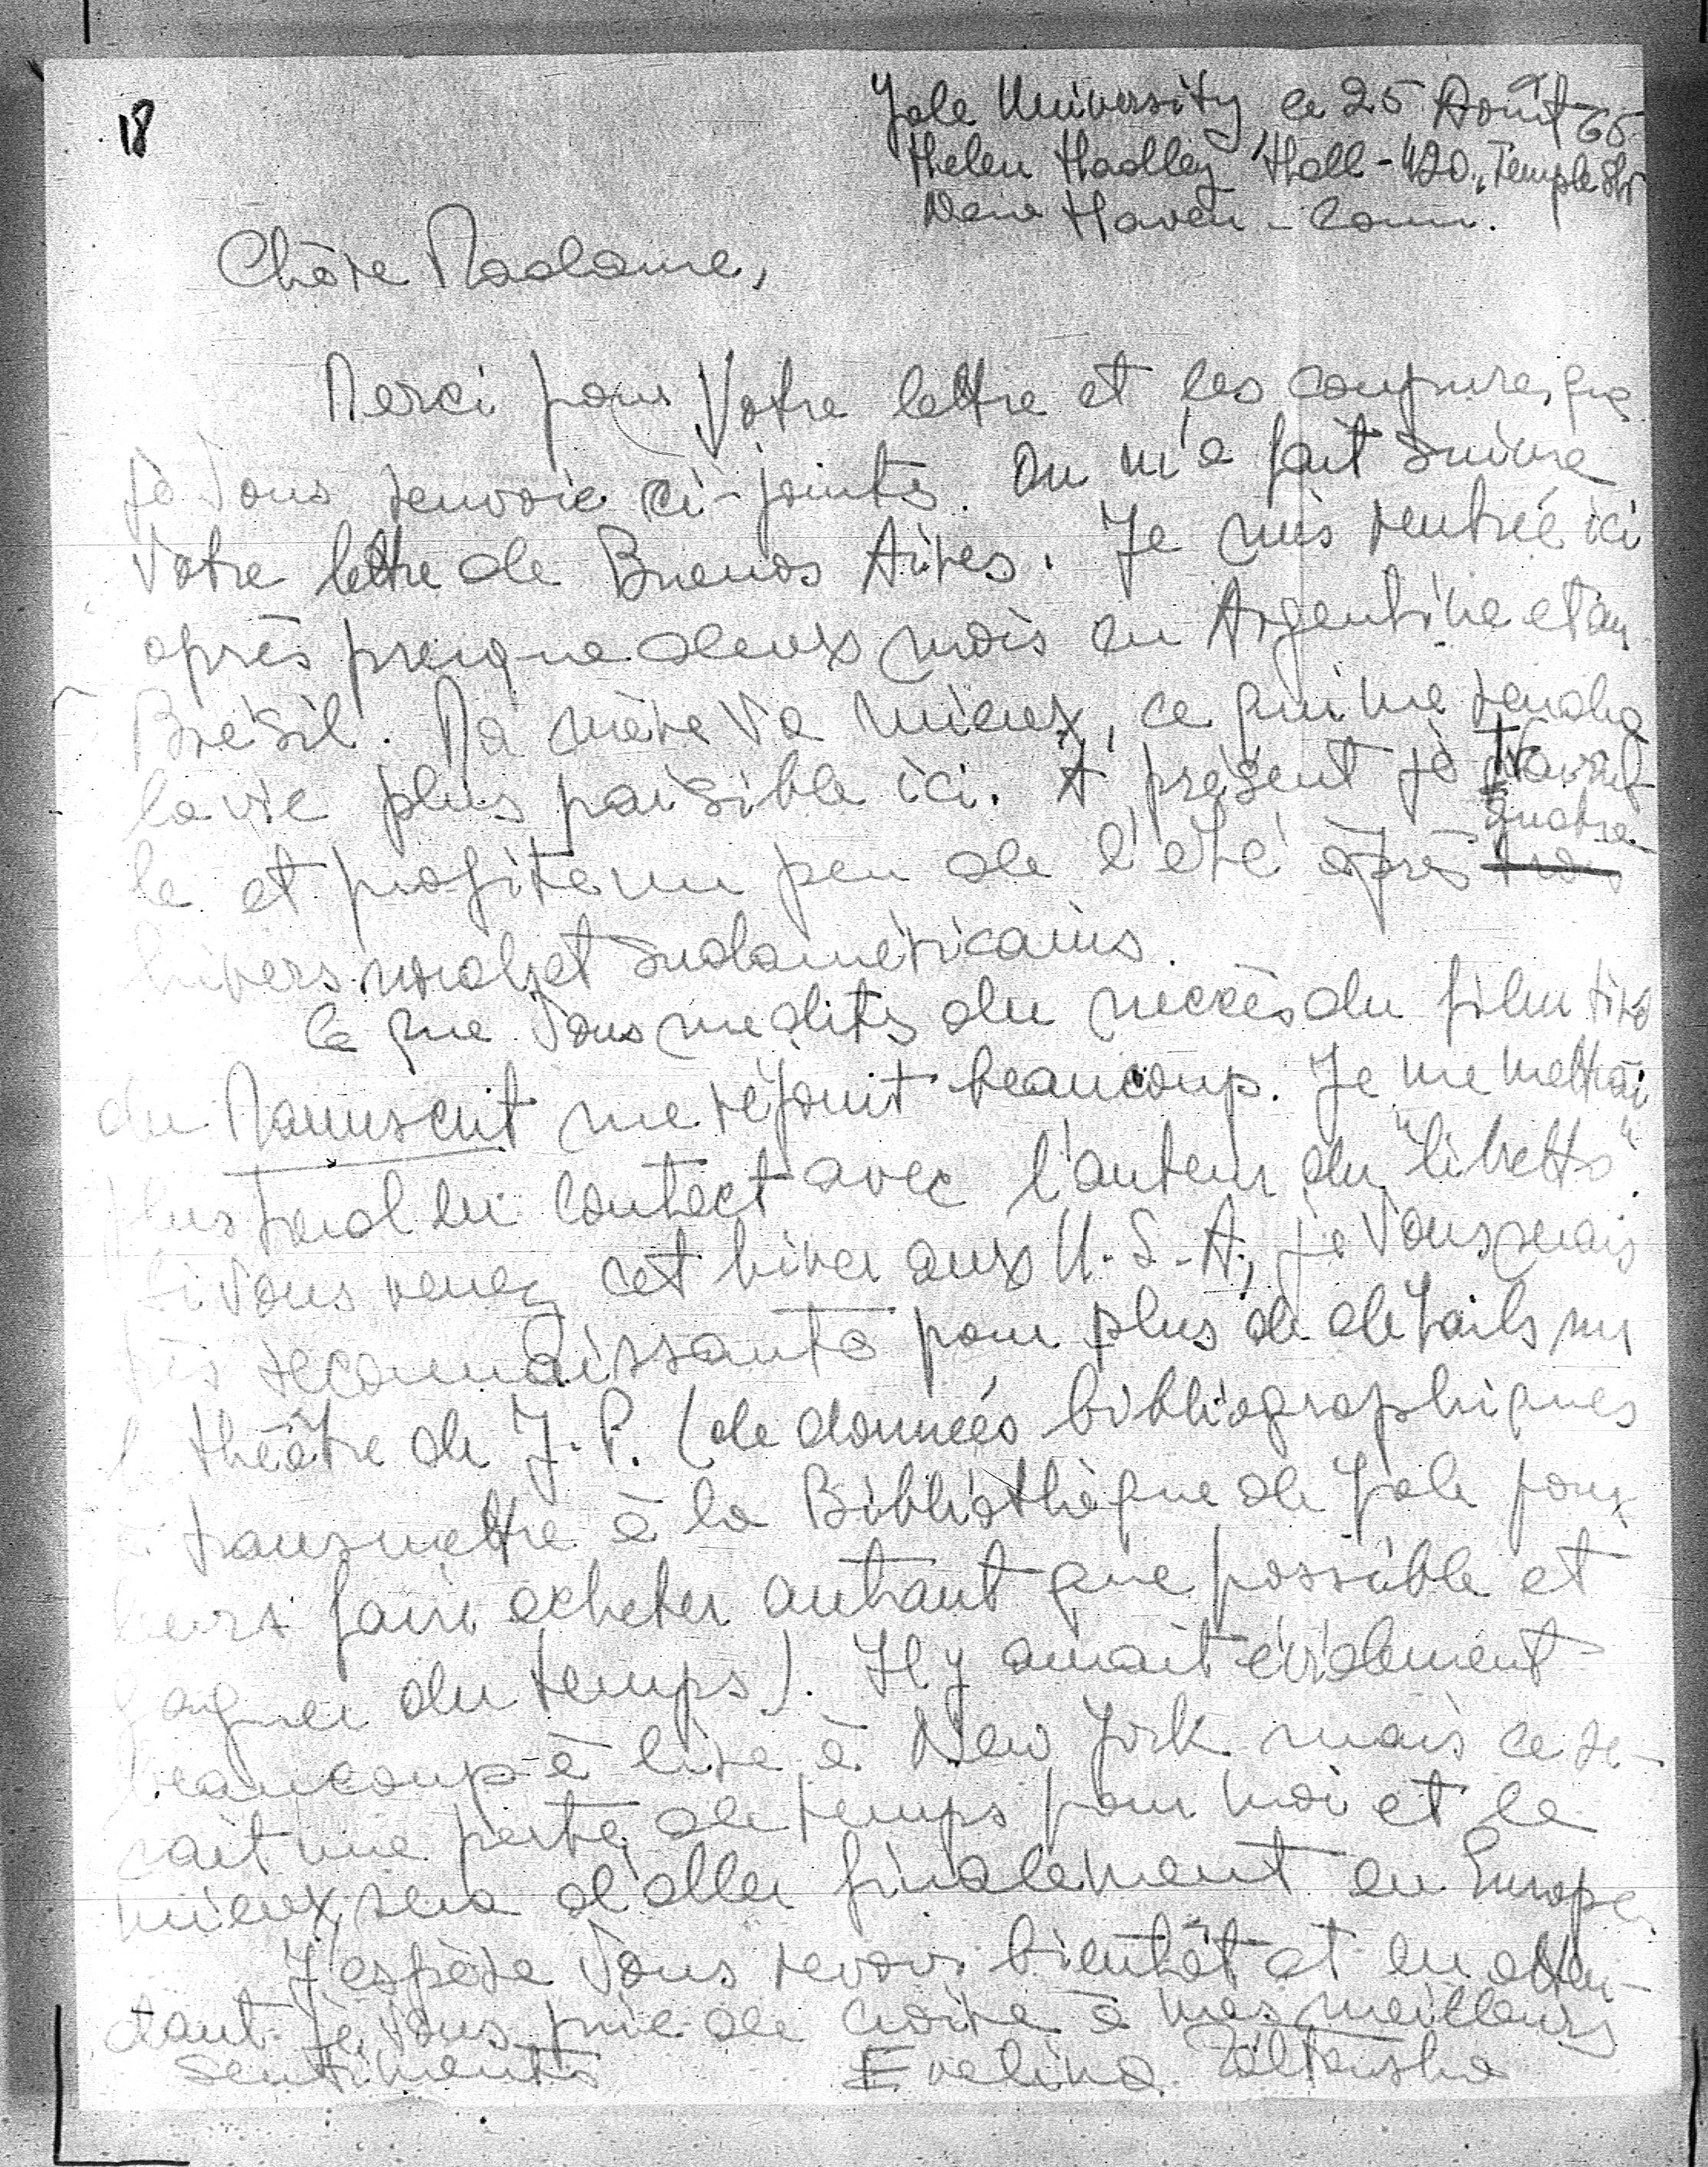 18
Yale University, ce 25 Août 65.
Helen Hadley Hall - 420, Temple Str
New Haven - Conn.
Chère Madame,
Merci pour Votre lettre et les coupures que
je Vous renvoie ci-jointes. On m'a fait suivre
Votre lettre de Buenos Aires. Je suis rentrée ici
après presque deux mois en Argentine et au
Brésil. Ma mère va mieux, ce qui me rendra
la vie plus paisible ici. A présent je travail-
quatre
le et profite un peu de l'été après trois
hivers nord et sudaméricains.
Ce que Vous me dites du succès du film tiré
du Manuscrit me réjouit beaucoup. Je me mettrai
plus tard en contact avec l'auteur du "libretto".
Si Vous venez cet hiver aux U.S.A, je Vous serais
très reconnaissante pour plus de détails sur
le théâtre de J.P. (de données bibliographiques
à transmettre à la Bibliothèque de Yale pour
leurs faire acheter autant que possible et
gagner du temps). Il y aurait évidement
beaucoup à lire à New York mais ce se-
rait une perte de temps pour moi et le
mieux sera d'aller finalement en Europe.
J'espère Vous revoir bientôt et en atten-
dant je Vous prie de croire à mes meilleurs
sentiments
Evelina